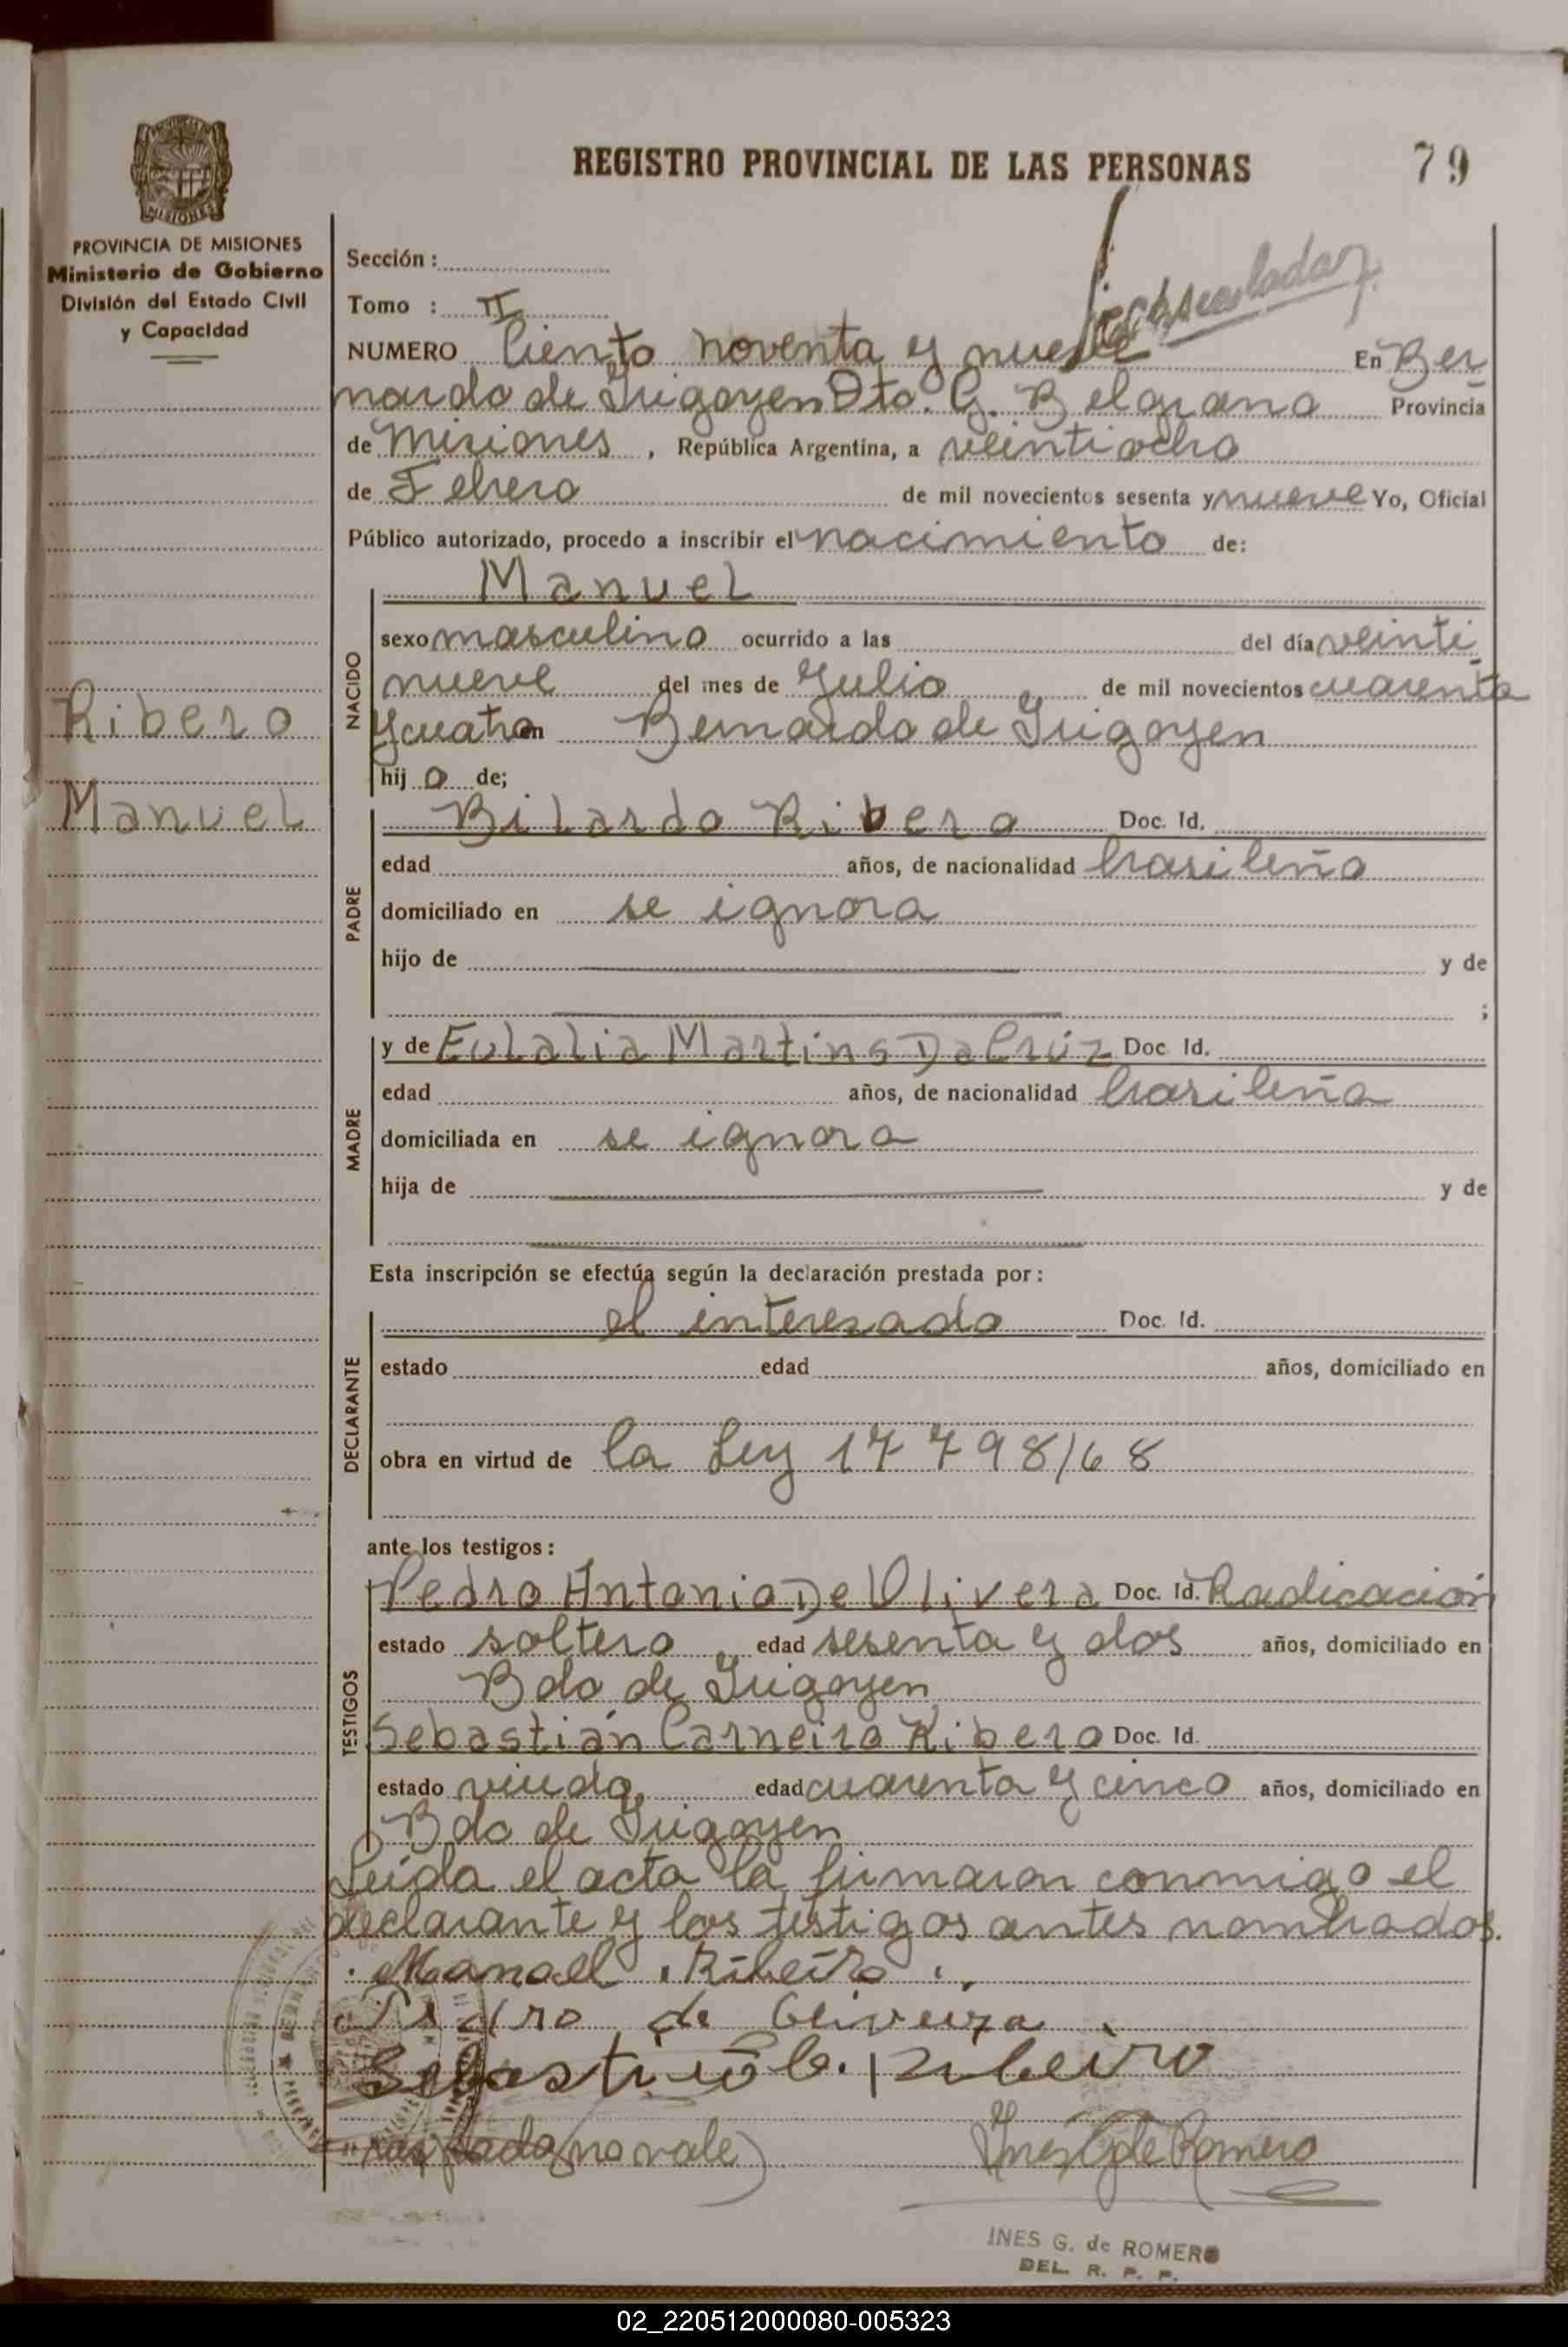 REGISTRO PROVINCIAL DE LAS PERSONAS
79
PROVINCIA DE MISIONES
Ministerio de Gobierno
División del Estado Civil
y Capacidad
Sección :
Tomo : II
NUMERO Ciento noventa y nueve En Ber
nardo de Irigoyen Dto. G. Belgrano Provincia
de Misiones, República Argentina, a veintiocho
de Febrero de mil novecientos sesenta y nueve Yo, Oficial
Público autorizado, procedo a inscribir el nacimiento de:
NACIDO
Manuel
sexo masculino ocurrido a las del día veinti
nueve del mes de Julio de mil novecientos cuarenta
y cuatro en Bernardo de Irigoyen
hij o de;
Ribero
Manuel
PADRE
Bilardo Ribero Doc. Id.
edad años, de nacionalidad brasileña
domiciliado en se ignora
hijo de y de
;
MADRE
y de Eulalia Martins Da Crúz Doc. Id.
edad años, de nacionalidad brasileña
domiciliada en se ignora
hija de y de
Esta inscripción se efectúa según la declaración prestada por:
DECLARANTE
el interesado Doc. Id.
estado edad años, domiciliado en
obra en virtud de la Ley 17798/68
ante los testigos:
TESTIGOS
Pedro Antonio De Olivera Doc. Id. Radicación
estado soltero edad sesenta y dos años, domiciliado en
Bdo de Irigoyen
Sebastián Carneiro Ribero Doc. Id.
estado viudo, edad cuarenta y cinco años, domiciliado en
Bdo de Irigoyen
Leída el acta la firmaron conmigo el
declarante y los testigos antes nombrados.
Manoel Ribeiro
Pedro de Oliveira
Sebastião C. Ribeiro
(no vale)
Ines G de Romero
INES G. de ROMERO
DEL. R. P. P.
02_220512000080-005323